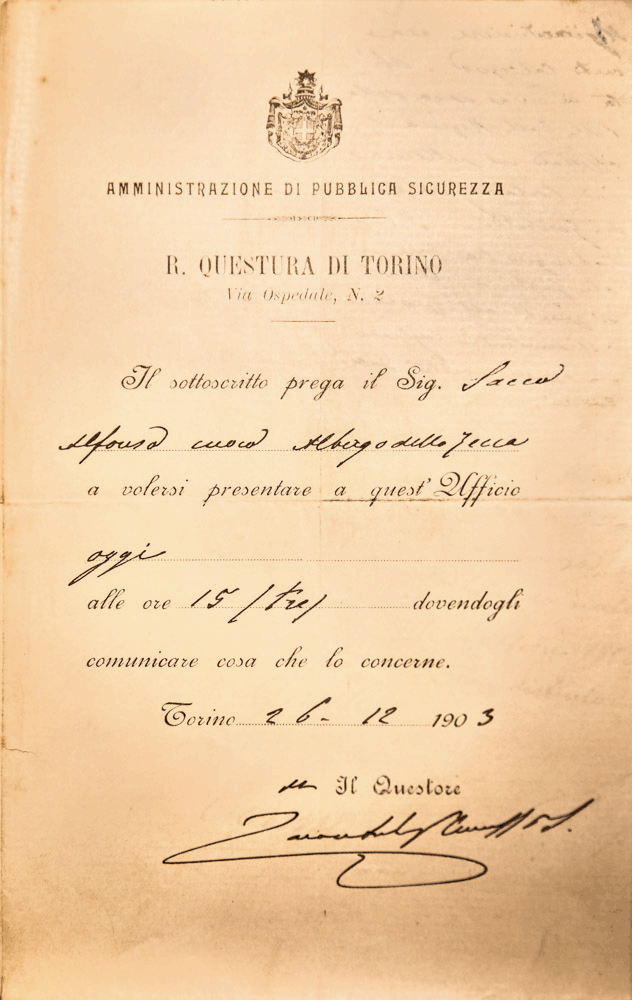 AMMINISTRAZIONE DI PUBBLICA SICUREZZA
R. QUESTURA DI TORINO
Via Ospedale, N. 2
Il sottoscritto prega il Sig. Sacco
Alfonso cuoco Albergo della Zecca
a volersi presentare a quest' Ufficio
oggi
alle ore 15 (tre) dovendogli
comunicare cosa che lo concerne.
Torino 26 - 12 1903
Il Questore